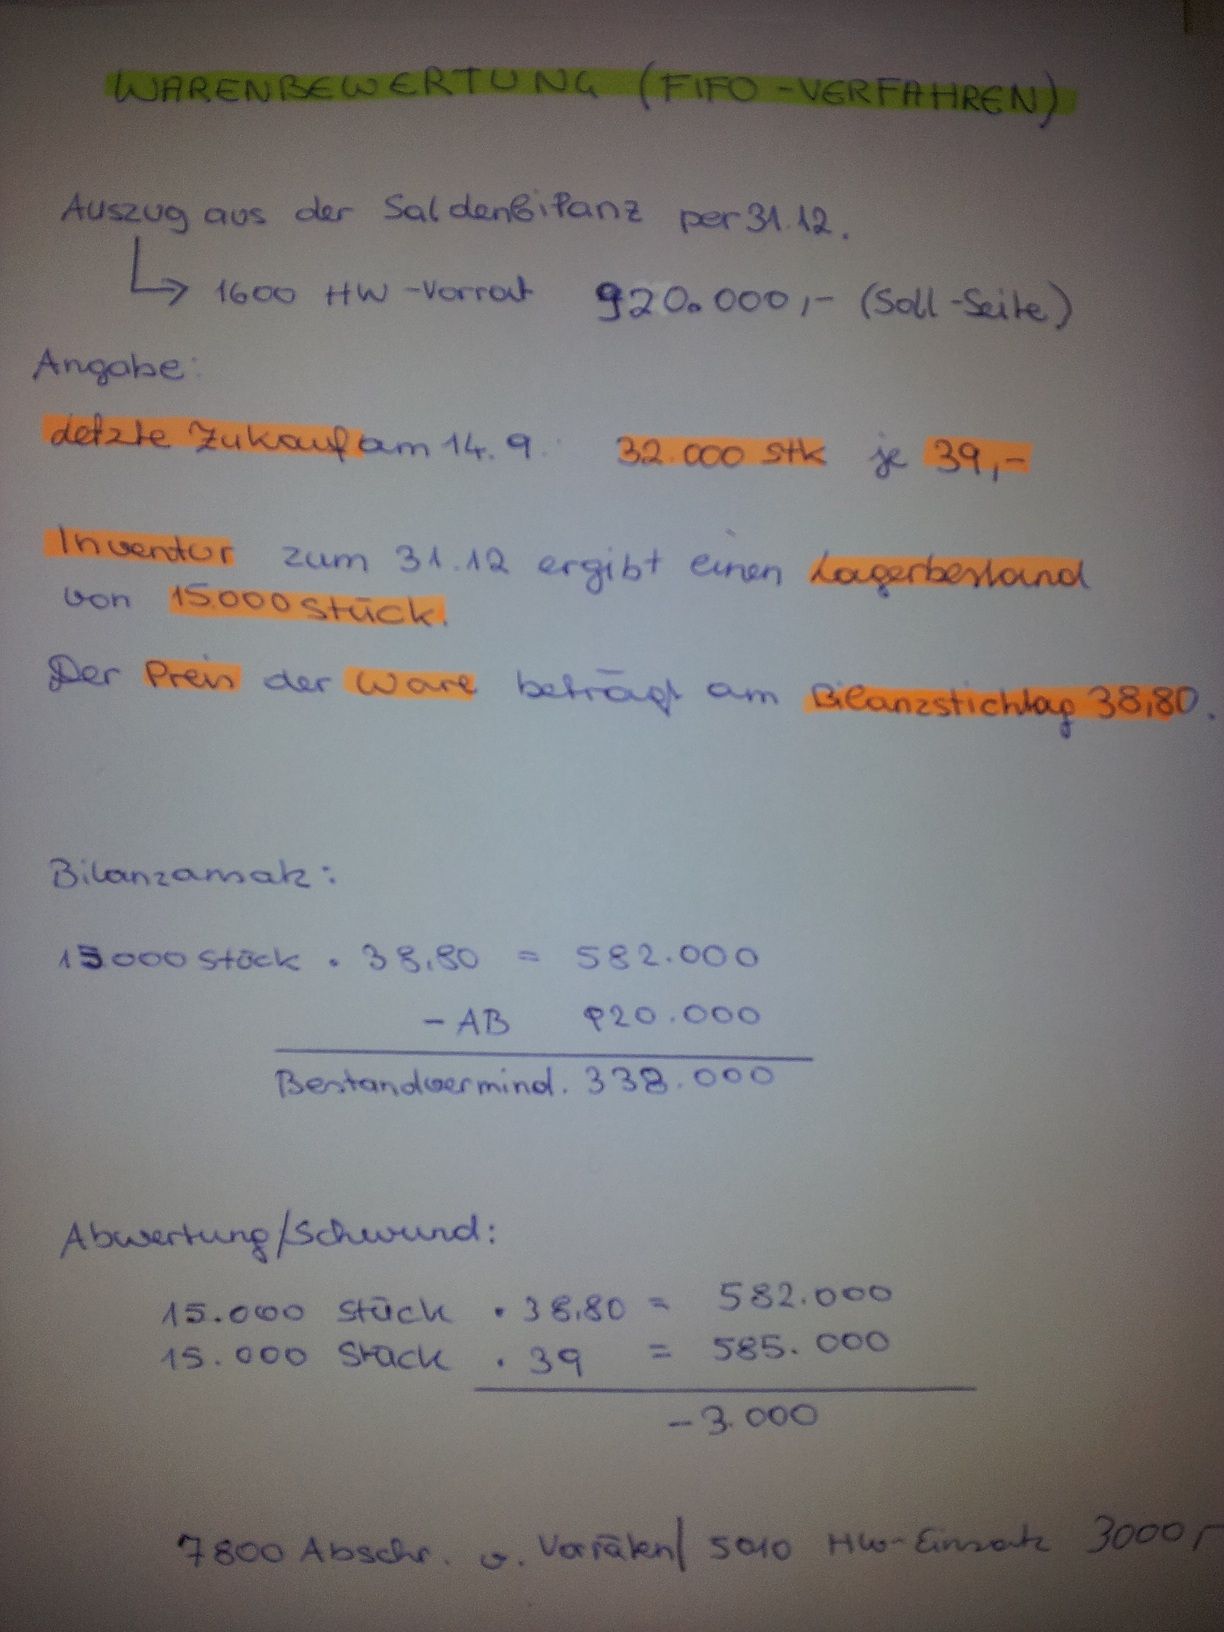 WARENBEWERTUNG (FIFO-VERFAHREN)
Auszug aus der Saldenbilanz per 31.12.
↳ 1600 HW-Vorrat 920.000,- (Soll-Seite)
Angabe:
Letzte Zukauf am 14.9.: 32.000 Stk je 39,-
Inventur zum 31.12 ergibt einen Lagerbestand
von 15.000 Stück.
Der Preis der Ware beträgt am Bilanzstichtag 38,80.
Bilanzansatz:
15000 Stück . 38,80 = 582.000
- AB 920.000
Bestandvermind. 338.000
Abwertung/Schwund:
15.000 Stück . 38,80 = 582.000
15.000 Stück . 39 = 585.000
-3.000
7800 Abschr. v. Vorräten/ 5010 HW-Einsatz 3000,-